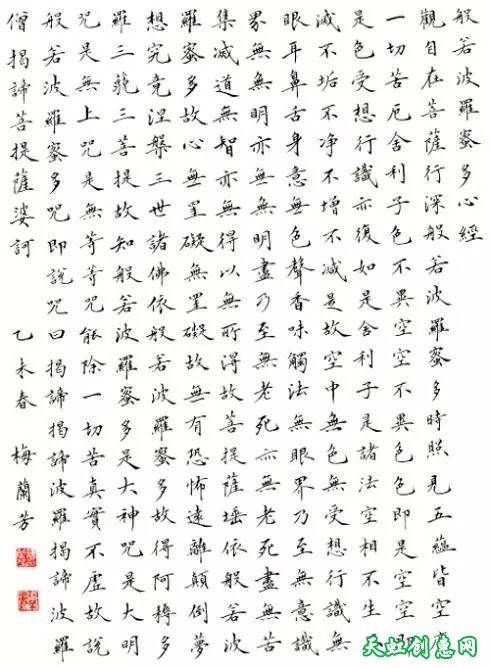 般若波羅蜜多心經
觀自在菩薩行深般若波羅蜜多時照見五蘊皆空度
一切苦厄舍利子色不異空空不異色色即是空空即
是色受想行識亦復如是舍利子是諸法空相不生不
滅不垢不净不增不減是故空中無色無受想行識無
眼耳鼻舌身意無色聲香味觸法無眼界乃至無意識
界無無明亦無無明盡乃至無老死亦無老死盡無苦
集滅道無智亦無得以無所得故菩提薩埵依般若波
羅蜜多故心無罣礙無罣礙故無有恐怖遠離顛倒夢
想究竟涅槃三世諸佛依般若波羅蜜多故得阿耨多
羅三藐三菩提故知般若波羅蜜多是大神咒是大明
咒是無上咒是無等等咒能除一切苦真實不虛故說
般若波羅蜜多咒即說咒曰揭諦揭諦波羅揭諦波羅
僧揭諦菩提薩婆訶
乙未春 梅蘭芳
天虹创意网